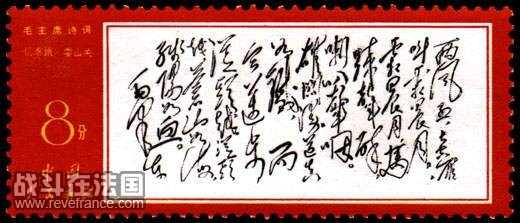 毛主席诗词
忆秦娥·娄山关
8分
西风烈长空雁
叫霜晨月。
霜晨月马
蹄声碎
喇叭声咽。
雄关漫道真
如铁而
今迈步
从头越从头
越苍山如海
残阳如血。
毛泽东
战斗在法国
www.revefrance.com